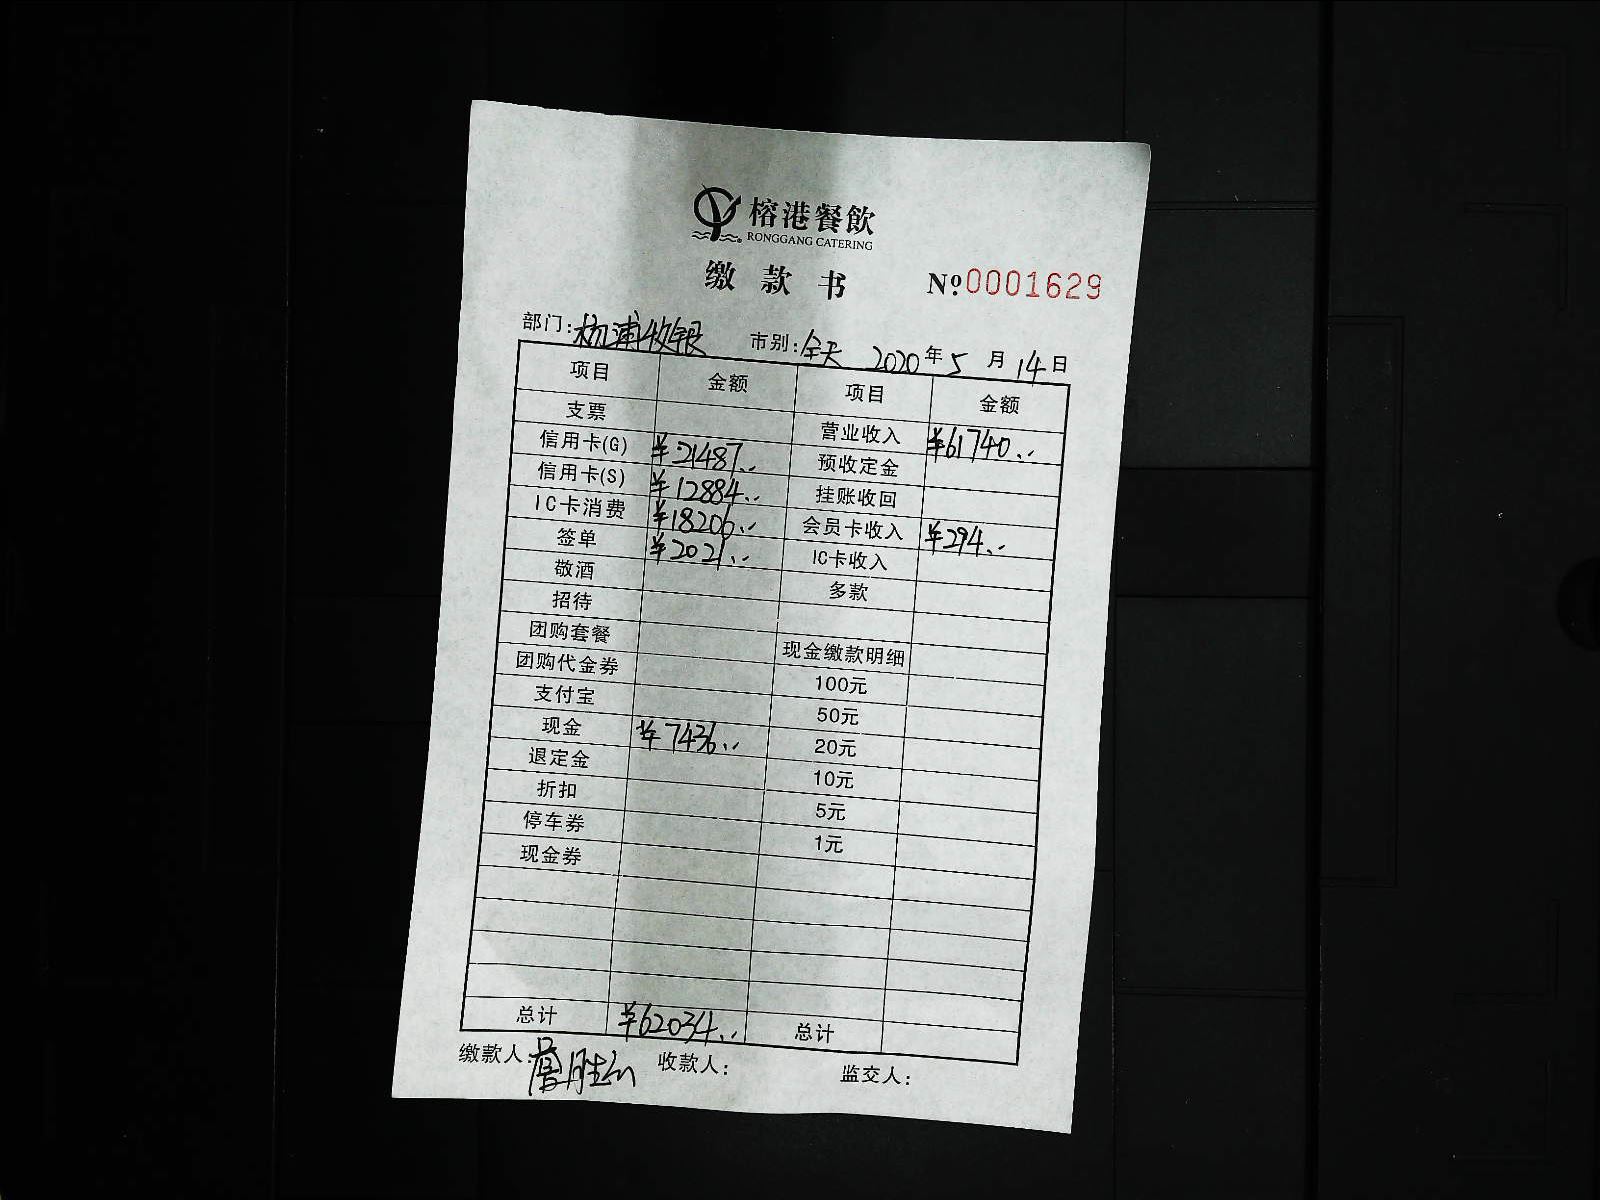 榕港餐飲
RONGGANG CATERING
缴款书 №0001629
部门:杨浦收银 市别:全天 2020年5月14日
项目 金额 项目 金额
支票 营业收入 ¥61740..
信用卡(G) ¥21487.. 预收定金
信用卡(S) ¥12884.. 挂账收回
IC卡消费 ¥18206.. 会员卡收入 ¥294..
签单 ¥2021.. IC卡收入
敬酒 多款
招待
团购套餐 现金缴款明细
团购代金券 100元
支付宝 50元
现金 ¥7436.. 20元
退定金 10元
折扣 5元
停车券 1元
现金券
总计 ¥62034.. 总计
缴款人: 收款人: 监交人: